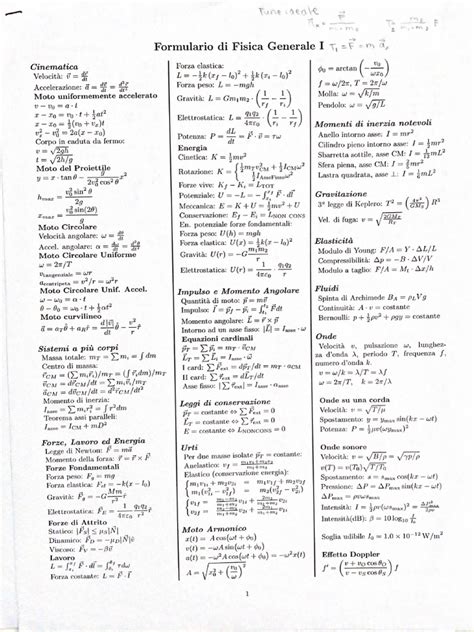 Fune ideale
Formulario di Fisica Generale I
Cinematica
Velocità: v⃗ = dr⃗/dt
Accelerazione: a⃗ = dv⃗/dt = d²r⃗/dt²
Moto uniformemente accelerato
v − v₀ = a · t
x − x₀ = v₀t + ½at²
x − x₀ = ½(v₀ + vₓ)t
v² − v₀² = 2a(x − x₀)
Corpo in caduta da fermo:
v = √2gh
t = √2h/g
Moto del Proiettile
y = x · tan θ − g/(2v₀² cos² θ) x²
h_max = v₀² sin² θ/2g
x_max = v₀² sin(2θ)/g
Moto Circolare
Velocità angolare: ω = dθ/dt
Accel. angolare: α = dω/dt = d²θ/dt²
Moto Circolare Uniforme
ω = 2π/T
v_tangenziale = ωr
a_centripeta = v²/r = ω²r
Moto Circolare Unif. Accel.
ω − ω₀ = α · t
θ − θ₀ = ω₀t + ½αt²
Moto curvilineo
Sistemi a più corpi
Massa totale: m_T = ∑ m_i = ∫ dm
Centro di massa:
r⃗_CM = (∑ m_i r⃗_i)/m_T = (∫ r⃗ dm)/m_T
v⃗_CM = dr⃗_CM/dt = ∑ m_i v⃗_i/m_T
Momento di inerzia:
I_asse = ∑ m_i r_i² = ∫ r² dm
Teorema assi paralleli:
I_asse = I_CM + MD²
Forze, Lavoro ed Energia
Legge di Newton: F⃗ = ma⃗
Momento della forza: τ⃗ = r⃗ × F⃗
Forze Fondamentali
Forza peso: F_g = mg
Forza elastica: F_el = −k(x − l₀)
Gravità: F_g = −G Mm/r² r̂
Elettrostatica: F_E = 1/(4πε₀) q₁q₂/r²
Forze di Attrito
Statico: |F⃗_S| ≤ μ_S|N⃗|
Dinamico: F⃗_D = −μ_D|N⃗|v̂
Viscoso: F⃗_V = −βv⃗
Lavoro
Forza costante: L = F⃗ · l⃗
Forza elastica:
L = −½k(x_f − l₀)² + ½k(x_i − l₀)²
Forza peso: L = −mgh
Gravità: L = Gm₁m₂ · (1/r_f − 1/r_i)
Elettrostatica: L = q₁q₂/(4πε₀) · (1/r_i − 1/r_f)
Potenza: P = dL/dt = F⃗ · v⃗ = τω
Energia
Cinetica: K = ½mv²
Rotazione: K = { ½m_T v²_CM + ½I_CM ω²
½I_AsseFisso ω²
Forze vive: K_f − K_i = L_TOT
Potenziale: U = −L = −∫ F⃗ · dl⃗
Meccanica: E = K + U = ½mv² + U
Conservazione: E_f − E_i = L_NON CONS
En. potenziale forze fondamentali:
Forza peso: U(h) = mgh
Forza elastica: U(x) = ½k(x − l₀)²
Gravità: U(r) = −G m₁m₂/r
Elettrostatica: U(r) = 1/(4πε₀) · q₁q₂/r
Impulso e Momento Angolare
Quantità di moto: p⃗ = mv⃗
Impulso: I⃗ = p⃗_f − p⃗_i = ∫ F⃗ dt
Momento angolare: L⃗ = r⃗ × p⃗
Intorno ad un asse fisso: |L⃗| = I_asse · ω
Equazioni cardinali
p⃗_T = ∑ p⃗_i = m_T · v⃗_CM
L⃗_T = ∑ L⃗_i = I_asse · ω⃗
I card: ∑ F⃗_ext = dp⃗_T/dt = m_T · a⃗_CM
II card: ∑ τ⃗_ext = dL⃗_T/dt
Asse fisso: |∑ τ⃗_ext| = I_asse · α_asse
Leggi di conservazione
p⃗_T = costante ⇔ ∑ F⃗_ext = 0
L⃗_T = costante ⇔ ∑ τ⃗_ext = 0
E = costante ⇔ L_NONCONS = 0
Urti
Per due masse isolate p⃗_T = costante:
Anelastico: v_f = (m₁v₁+m₂v₂)/(m₁+m₂)
Elastico (conservazione energia):
Moto Armonico
x(t) = A cos(ωt + φ₀)
v(t) = −ωA sin(ωt + φ₀)
a(t) = −ω²A cos(ωt + φ₀) = −ω²x(t)
A = √x₀² + (v₀/ω)²
φ₀ = arctan(−v₀/ωx₀)
f = ω/2π, T = 2π/ω
Molla: ω = √k/m
Pendolo: ω = √g/L
Momenti di inerzia notevoli
Anello intorno asse: I = mr²
Cilindro pieno intorno asse: I = ½mr²
Sbarretta sottile, asse CM: I = 1/12 mL²
Sfera piena, asse CM: I = 2/5 mr²
Lastra quadrata, asse ⊥: I = 1/6 mL²
Gravitazione
3ª legge di Keplero: T² = (4π²/GM) R³
Vel. di fuga: v =
Elasticità
Modulo di Young: F/A = Y · ΔL/L
Compressibilità: Δp = −B · ΔV/V
Modulo a taglio: F/A = M_t · Δx/h
Fluidi
Spinta di Archimede B_A = ρ_L V g
Continuità: A · v = costante
Bernoulli: p + ½ρv² + ρgy = costante
Onde
Velocità v, pulsazione ω, lunghez-
za d'onda λ, periodo T, frequenza f,
numero d'onda k.
v = ω/k = λ/T = λf
ω = 2π/T, k = 2π/λ
Onde su una corda
Velocità: v = √T/μ
Spostamento: y = y_max sin(kx − ωt)
Potenza: P = ½μv(ωy_max)²
Onde sonore
Velocità: v = √B/ρ = √γp/ρ
Spostamento: s = s_max cos(kx − ωt)
Pressione: ΔP = ΔP_max sin(kx − ωt)
ΔP_max = ρvωs_max
Intensità(dB): β = 10 log₁₀ I/I₀
Soglia udibile I₀ = 1.0 × 10⁻¹² W/m²
Effetto Doppler
f' = f((v + v_O cos θ_O)/(v − v_S cos θ_S))
1